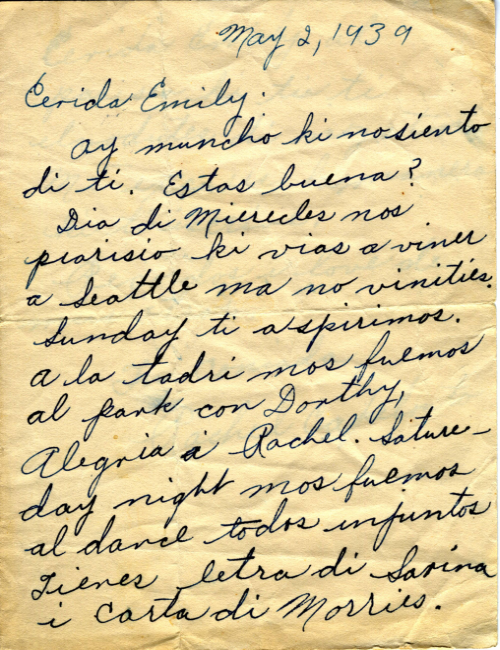 May 2, 1939
Cerida Emily.
ay muncho ki no siento
di ti. Estas buena?
Dia di Mierecles nos
piarisio ki vias a viner
a Seattle ma no vinities.
Sunday ti aspirimos.
a la tadri mos fuemos
al park con Dorthy,
Alegria i Rachel. Sature-
day night mos fuemos
al dance todos injuntos
Tienes letra di Sarina
i carta di Morries.